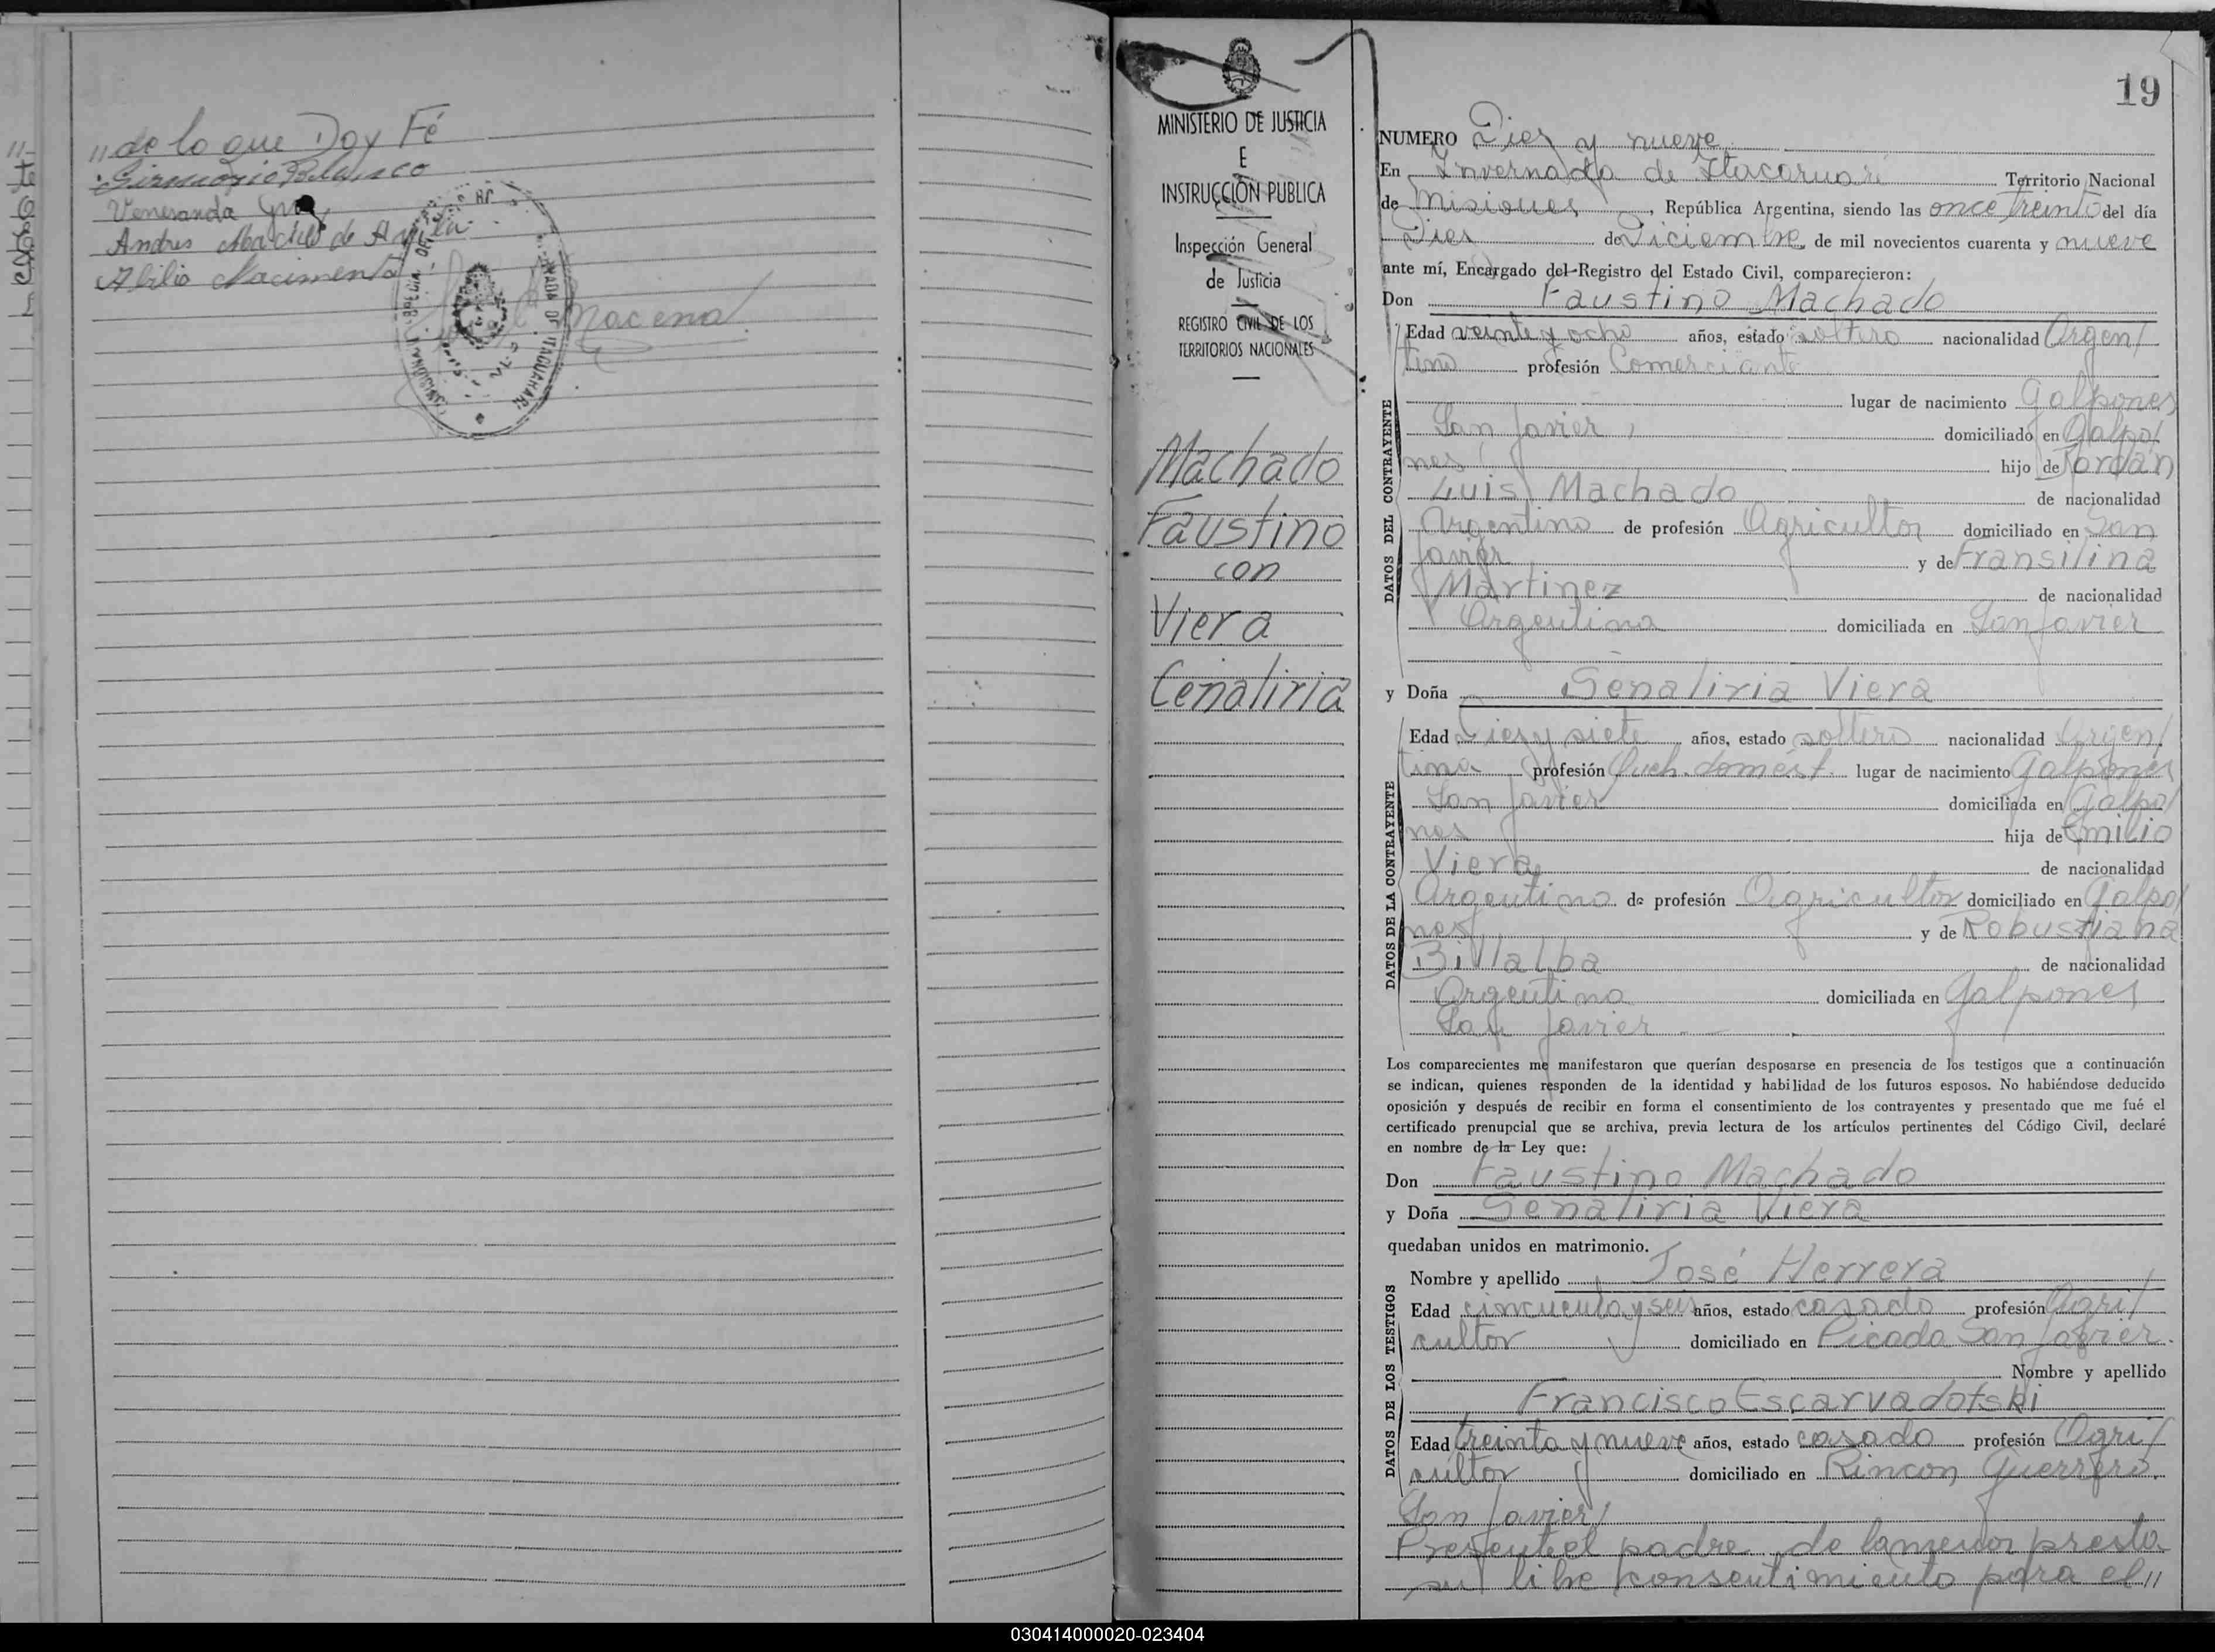 "de lo que Doy Fé
Veneranda
Andres Machado de Avila
Abilio Nacimento
Macena
19
MINISTERIO DE JUSTICIA
E
INSTRUCCIÓN PUBLICA
Inspección General
de Justicia
REGISTRO CIVIL DE LOS
TERRITORIOS NACIONALES
Machado
Faustino
con
Viera
Cenaliria
NUMERO Dies y nueve
En Invernada de Itacaruare Territorio Nacional
de Misiones, República Argentina, siendo las once treinta del día
Dies de Diciembre de mil novecientos cuarenta y nueve
ante mí, Encargado del Registro del Estado Civil, comparecieron:
Don Faustino Machado
DATOS DEL CONTRAYENTE
Edad veinte y ocho años, estado soltero nacionalidad Argen/
tino profesión Comerciante
lugar de nacimiento Galpones
San Javier, domiciliado en Galpo/
nes hijo de Jordán
Luis Machado de nacionalidad
Argentino de profesión Agricultor domiciliado en San
Javier y de Fransilina
Martinez de nacionalidad
Argentina domiciliada en San Javier
y Doña Senaliria Viera
DATOS DE LA CONTRAYENTE
Edad Dies y siete años, estado soltera nacionalidad Argen/
tina profesión Queh. domést. lugar de nacimiento Galpones
San Javier domiciliada en Galpo/
nes hija de Emilio
Viera de nacionalidad
Argentino de profesión Agricultor domiciliado en Galpo/
nes y de Robustiana
Billalba de nacionalidad
Argentina domiciliada en Galpones
San Javier
Los comparecientes me manifestaron que querían desposarse en presencia de los testigos que a continuación
se indican, quienes responden de la identidad y habilidad de los futuros esposos. No habiéndose deducido
oposición y después de recibir en forma el consentimiento de los contrayentes y presentado que me fué el
certificado prenupcial que se archiva, previa lectura de los artículos pertinentes del Código Civil, declaré
en nombre de la Ley que:
Don Faustino Machado
y Doña Senaliria Viera
quedaban unidos en matrimonio.
DATOS DE LOS TESTIGOS
Nombre y apellido José Herrera
Edad cincuenta y seis años, estado casado profesión Agri/
cultor domiciliado en Picada San Javier.
Nombre y apellido
Francisco Escarvadotski
Edad treinta y nueve años, estado casado profesión Agri/
cultor domiciliado en Rincon Guerrero.
San Javier/
Presente el padre de la menor presta
su libre consentimiento para el //
030414000020-023404